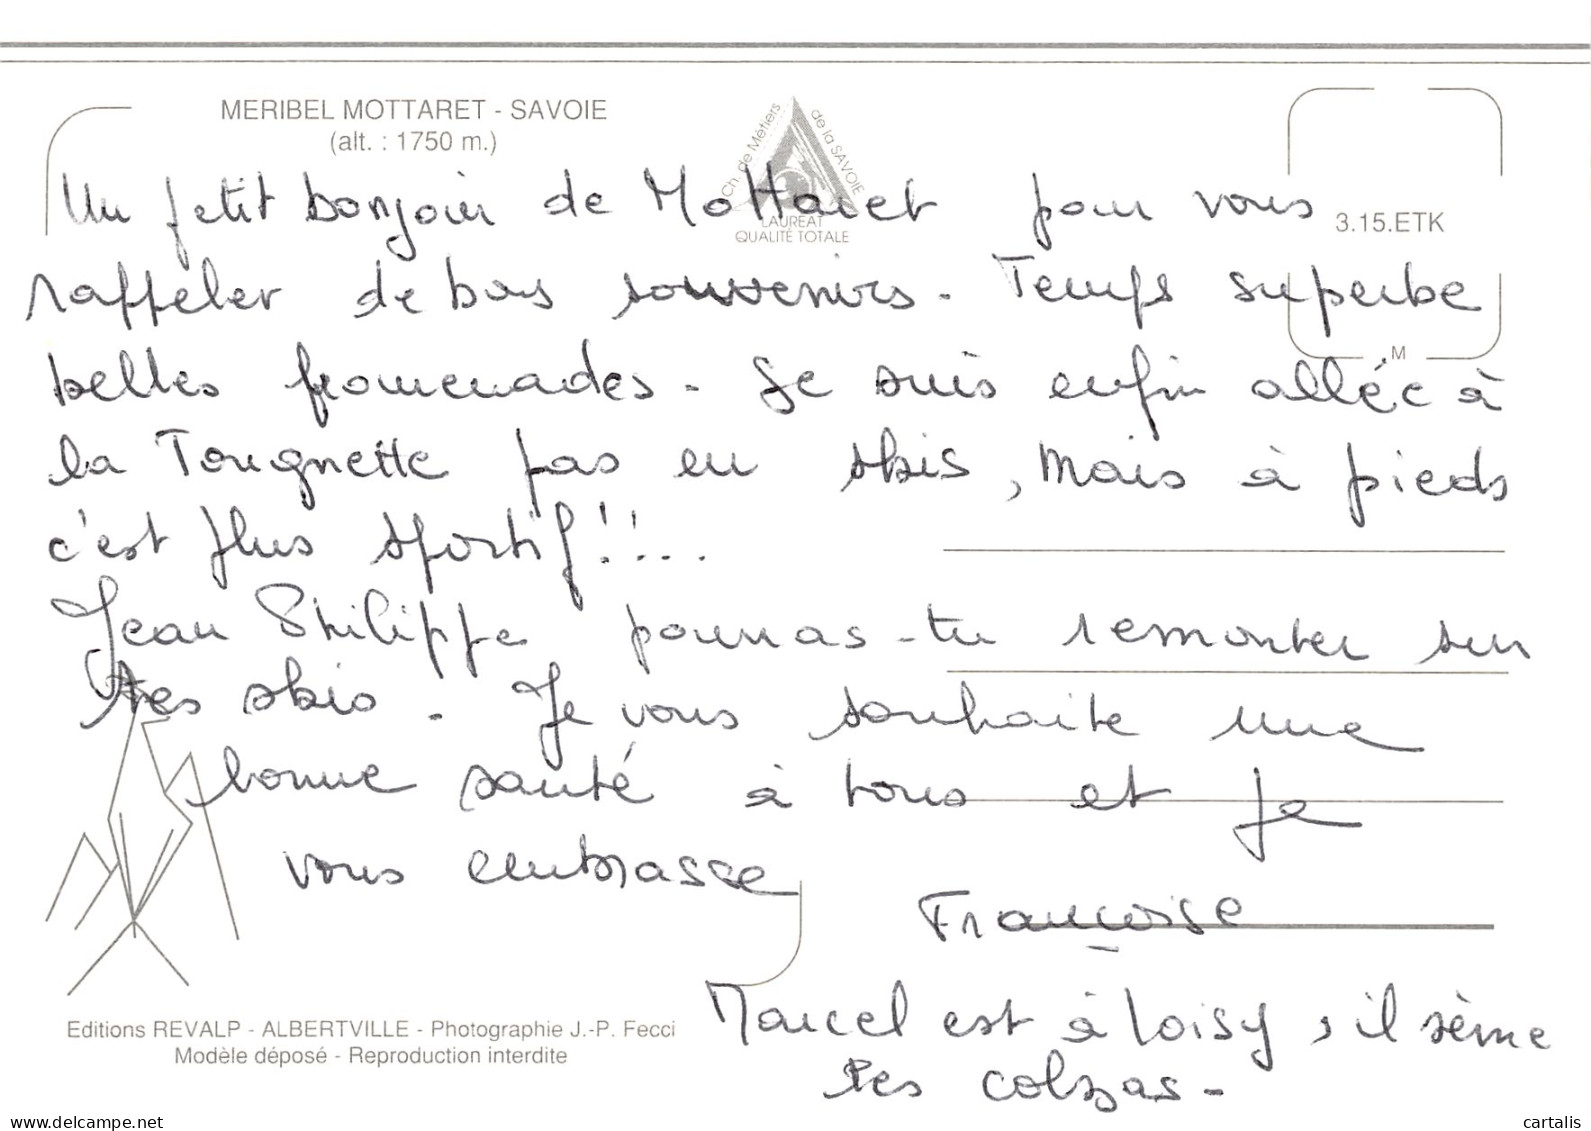 MERIBEL MOTTARET - SAVOIE
(alt. : 1750 m.)
Ch. de Métiers de la SAVOIE
LAUREAT
QUALITÉ TOTALE
3.15.ETK
M
Un petit bonjour de Mottaret pour vous
rappeler de bons souvenirs - Temps superbe
belles promenades - Je suis enfin allée à
la Tougnette pas en skis, mais à pieds
c'est plus sportif !!...
Jean Philippe pourras-tu remonter sur
tes skis - Je vous souhaite une
bonne santé à tous et je
vous embrasse
Françoise
Marcel est à Loisy, il sème
les colzas -
Editions REVALP - ALBERTVILLE - Photographie J.-P. Fecci
Modèle déposé - Reproduction interdite
www.delcampe.net
cartalis